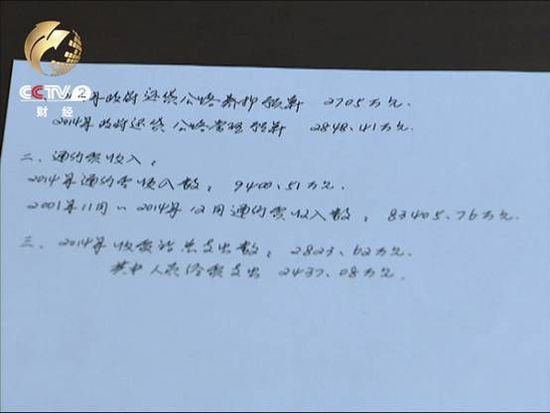 CCTV 2
财经
年政府还贷公路养护预算 2705万元
2014年政府还贷公路管理预算 2848.41万元.
二、通行费收入:
2014年通行费收入数: 9400.51万元.
2001年11月~2014年12月通行费收入数: 83405.76万元.
三、2014年收费站总支出数: 2823.62万元
其中人员经费支出 2437.08万元.